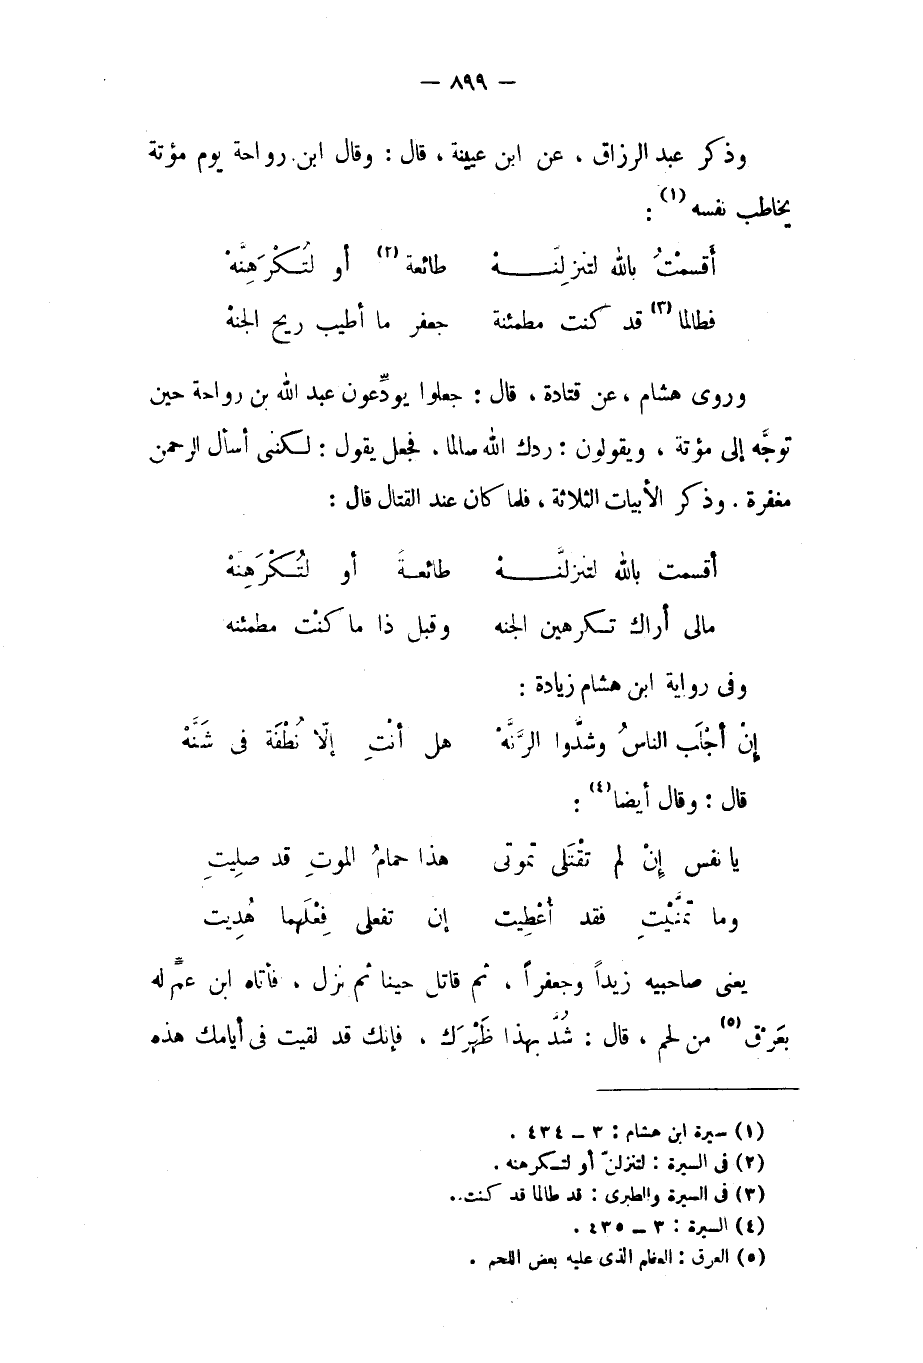 — ٨٩٩ —
وذكر عبد الرزاق ، عن ابن عيينة ، قال : وقال ابن رواحة يوم مؤتة
يخاطب نفسه (١) :
أَقسمْتُ بالله لتنزلِنَّـــــهْ طائعة (٢) أو لَتُكْرَهِنَّهْ
فطالما (٣) قد كنت مطمئنة جعفر ما أطيب ريح الجنهْ
وروى هشام ، عن قتادة ، قال : جعلوا يودِّعون عبد الله بن رواحة حين
توجَّه إلى مؤتة ، ويقولون : ردك الله سالما . فجعل يقول : لكننى أسأل الرحمن
مغفرة . وذكر الأبيات الثلاثة ، فلما كان عند القتال قال :
أقسمت بالله لتنزلنَّـــــهْ طائعــةً أو لَتُكْرَهِنَهْ
مالى أراك تكرهين الجنه وقبل ذا ما كنْت مطمئنه
وفى رواية ابن هشام زيادة :
إِنْ أَجْلَب الناسُ وشدُّوا الرَّنَّهْ هل أنْتِ إلّا نُطْفَة فى شَنَّهْ
قال : وقال أيضا (٤) :
يا نفس إِنْ لم تقْتَلى تموتى هذا حمامُ الموتِ قد صلِيتِ
وما تمنَّيْتِ فقد أُعْطِيت إن تفعلى فِعْلَهما هُدِيت
يعنى صاحبيه زيداً وجعفراً ، ثم قاتل حينا ثم نزل ، فأتاه ابن عمٍّ له
بعَرْق (٥) من لحم ، قال : شُدَّ بهذا ظَهْرَك ، فإنك قد لقيت فى أيامك هذه
(١) سيرة ابن هشام : ٣ – ٤٣٤ .
(٢) فى السيرة : لتنزلنّ أو لتكرهنه .
(٣) فى السيرة والطبرى : قد طالما قد كنت..
(٤) السيرة : ٣ – ٤٣٥ .
(٥) العرق : العظم الذى عليه بعض اللحم .